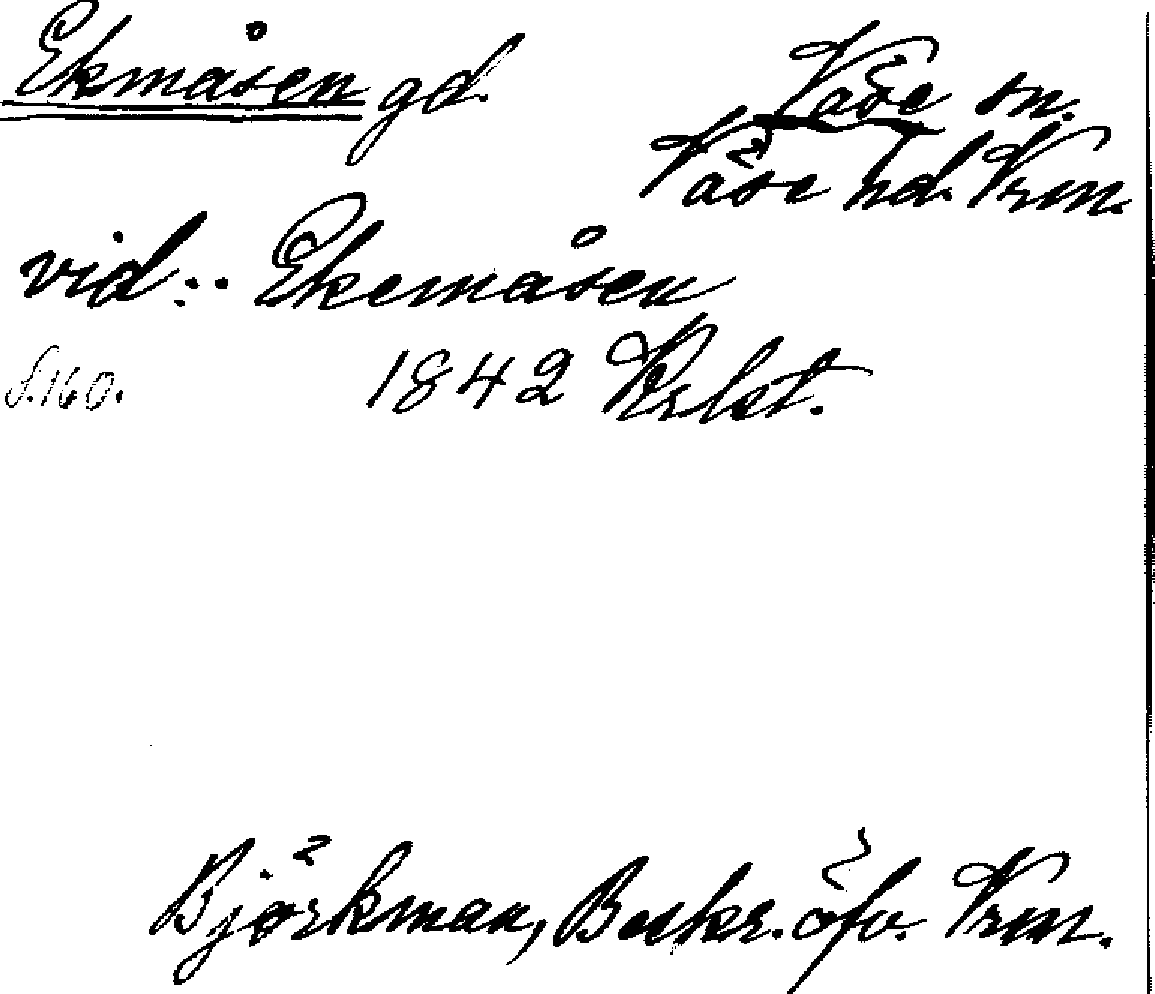 Ekmåsen gd. Väse sn.
Väse hd. Vrm.
vid: Ekemåsen
S. 160. 1842 Krlst.
Björkman, Beskr. öfv. Vrm.